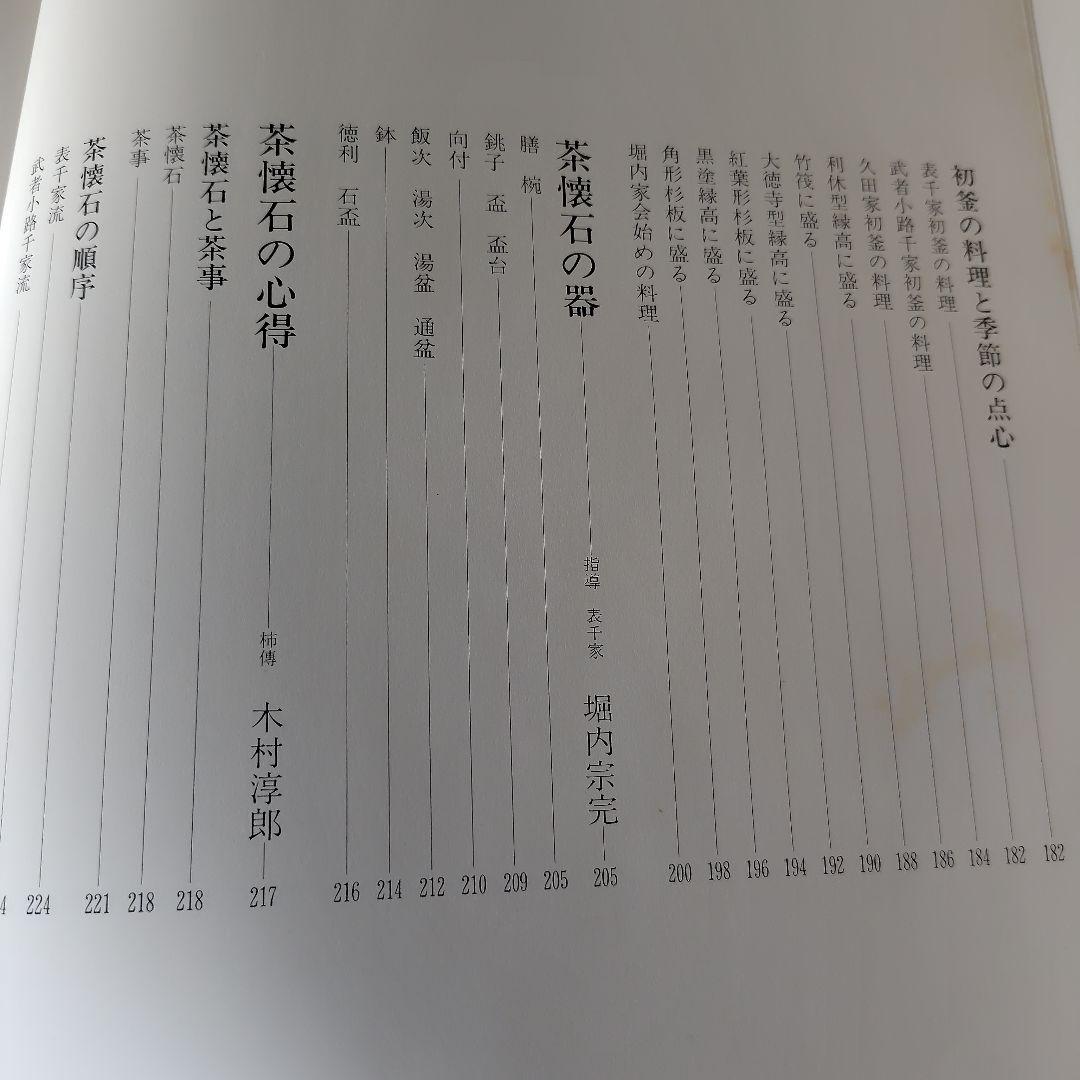 初釜の料理と季節の点心 182
表千家初釜の料理 182
武者小路千家初釜の料理 184
久田家初釜の料理 186
利休型縁高に盛る 188
竹筏に盛る 190
大徳寺型縁高に盛る 192
紅葉形杉板に盛る 194
黒塗縁高に盛る 196
角形杉板に盛る 198
堀内家会始めの料理 200
茶懐石の器 指導 表千家 堀内宗完 205
膳 椀 205
銚子 盃 盃台 209
向付 210
飯次 湯次 湯盆 通盆 212
鉢 214
徳利 石盃 216
茶懐石の心得 柿傳 木村淳郎 217
茶懐石と茶事 218
茶懐石 218
茶事 221
茶懐石の順序 224
表千家流 4
武者小路千家流